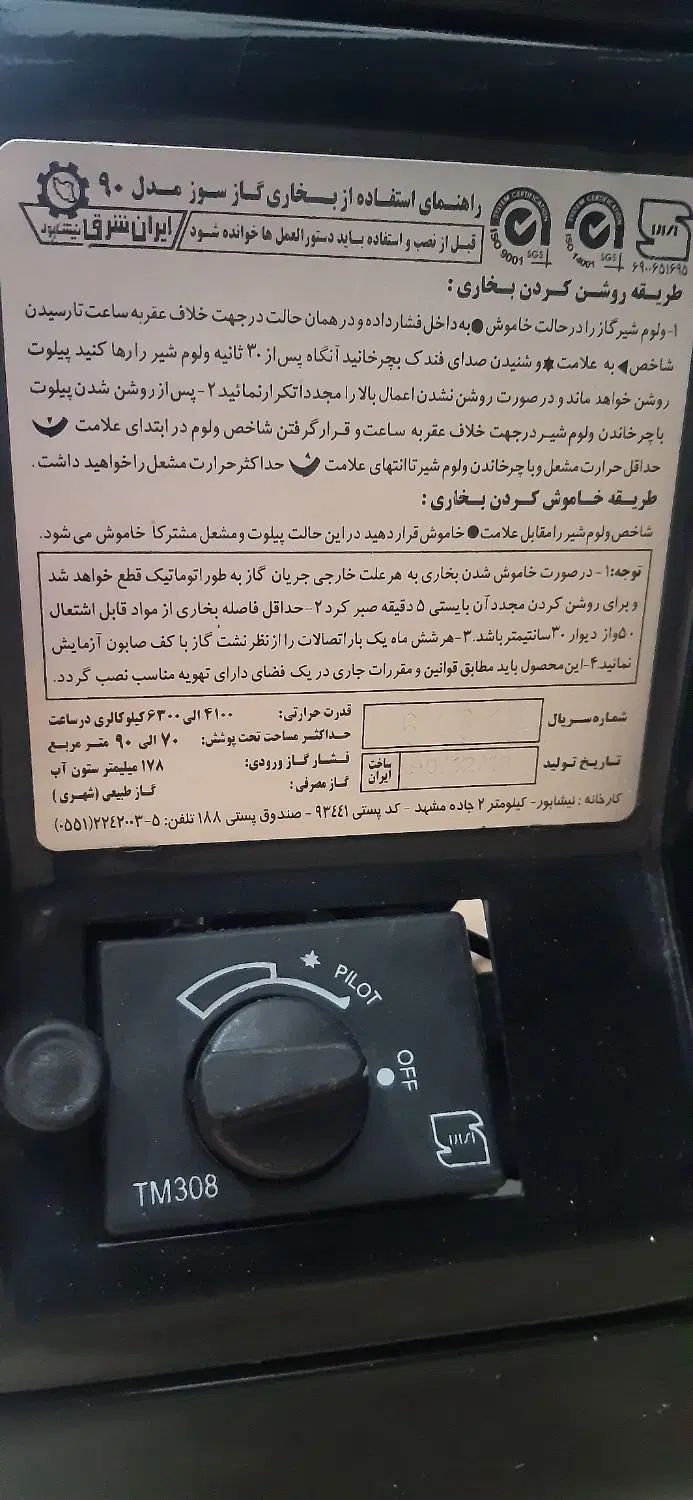 راهنمای استفاده از بخاری گاز سوز مدل ۹۰
قبل از نصب و استفاده باید دستورالعمل ها خوانده شود
ایران شرق نیشابور
SYSTEM CERTIFICATION
ISO 9001
SGS
SYSTEM CERTIFICATION
ISO 14001
SGS
۶۹۰۰۶۵۱۶۹۵
طریقه روشن کردن بخاری :
۱-ولوم شیر گاز را در حالت خاموش ● به داخل فشار داده و در همان حالت در جهت خلاف عقربه ساعت تا رسیدن
شاخص ◀ به علامت ✱ و شنیدن صدای فندک بچرخانید آنگاه پس از ۳۰ ثانیه ولوم شیر را رها کنید پیلوت
روشن خواهد ماند و در صورت روشن نشدن اعمال بالا را مجددا تکرار نمائید ۲- پس از روشن شدن پیلوت
با چرخاندن ولوم شیر در جهت خلاف عقربه ساعت و قرار گرفتن شاخص ولوم در ابتدای علامت
حداقل حرارت مشعل و با چرخاندن ولوم شیر تا انتهای علامت حداکثر حرارت مشعل را خواهید داشت .
طریقه خاموش کردن بخاری :
شاخص ولوم شیر را مقابل علامت ● خاموش قرار دهید در این حالت پیلوت و مشعل مشترکا خاموش می شود.
توجه:۱- در صورت خاموش شدن بخاری به هر علت خارجی جریان گاز به طور اتوماتیک قطع خواهد شد
و برای روشن کردن مجدد آن بایستی ۵ دقیقه صبر کرد ۲-حداقل فاصله بخاری از مواد قابل اشتعال
۵۰ و از دیوار ۳۰ سانتیمتر باشد. ۳-هر شش ماه یک بار اتصالات را از نظر نشت گاز با کف صابون آزمایش
نمائید. ۴-این محصول باید مطابق قوانین و مقررات جاری در یک فضای دارای تهویه مناسب نصب گردد.
شماره سریال
قدرت حرارتی: ۴۱۰۰ الی ۶۳۰۰ کیلو کالری در ساعت
حداکثر مساحت تحت پوشش: ۷۰ الی ۹۰ متر مربع
تاریخ تولید
ساخت ایران
فشار گاز ورودی: ۱۷۸ میلیمتر ستون آب
گاز مصرفی: گاز طبیعی (شهری)
کارخانه : نیشابور- کیلومتر ۲ جاده مشهد - کد پستی ۹۳۴۴۱ - صندوق پستی ۱۸۸ تلفن: ۵-۲۲۴۲۰۰۳(۰۵۵۱)
PILOT
OFF
TM308